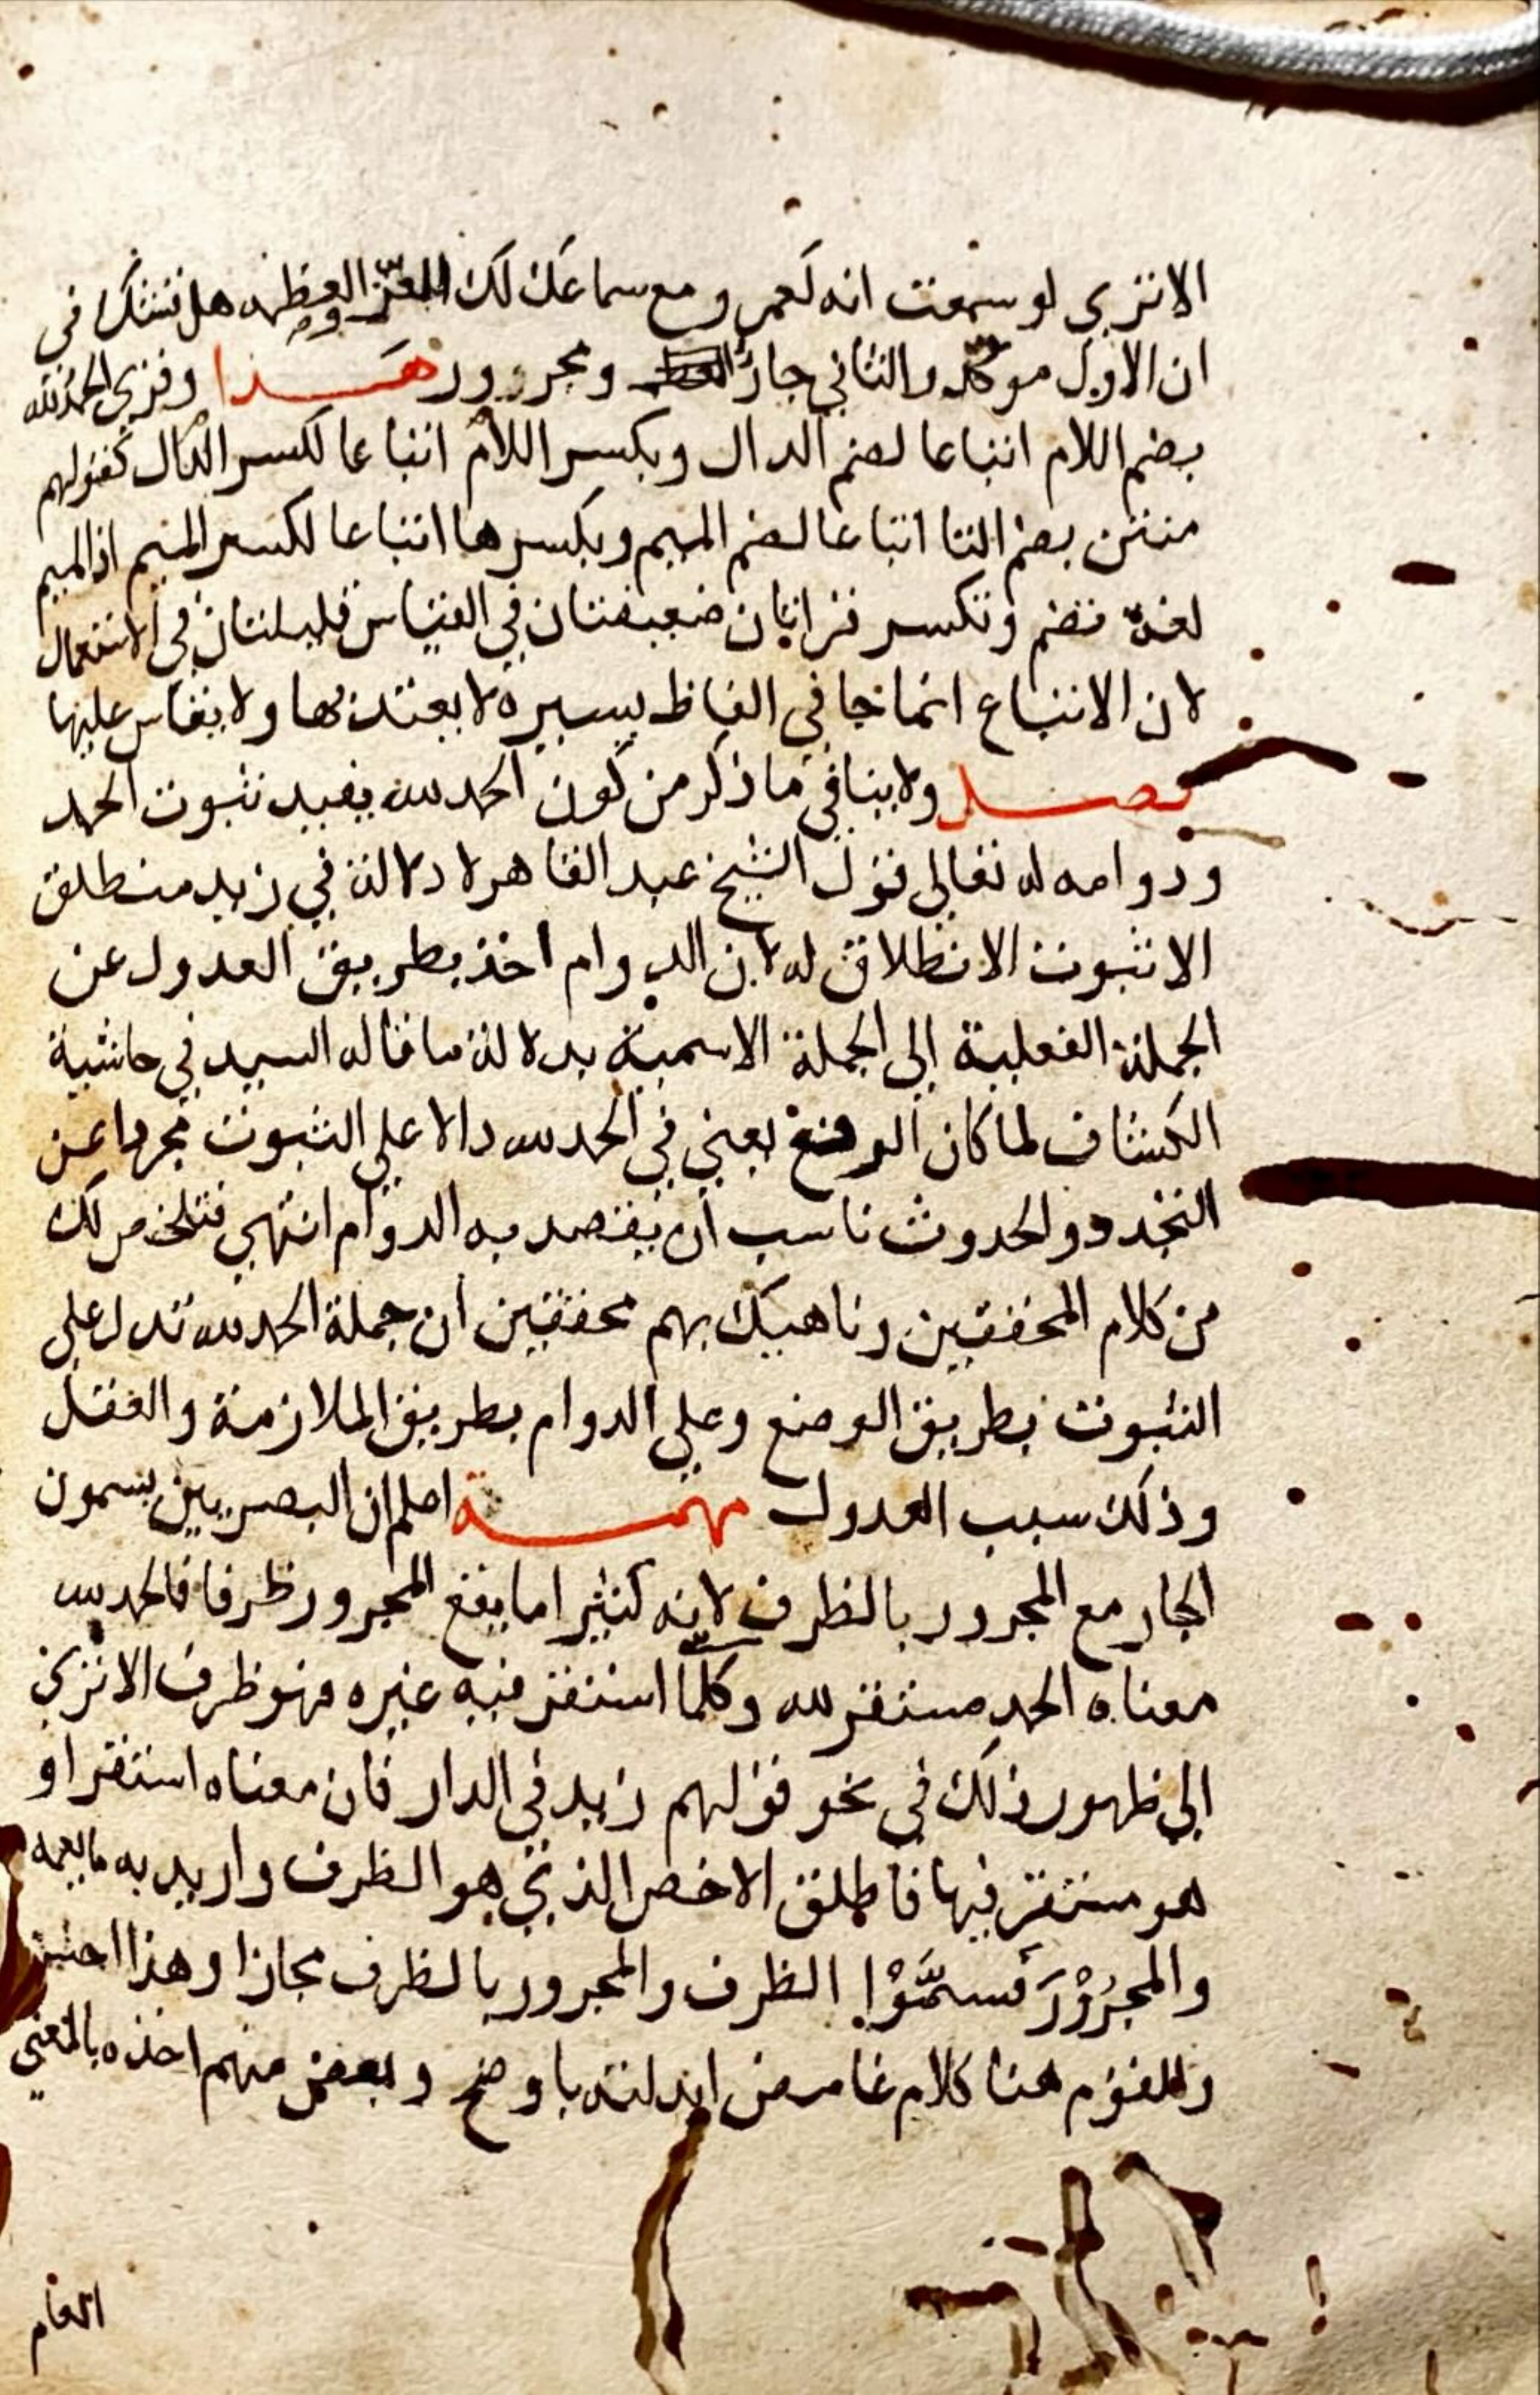 الا تري لو سمعت انه لعمرو مع سماعك لك العز العظمه هل تشك في
ان الاول موكد والثاني جار ومجرور هذا وقري الحمد لله
بضم اللام اتباعا لضم الدال وبكسر اللام اتباعا لكسر الدال كقولهم
منتن بضم التا اتباعا لضم الميم وبكسرها اتباعا لكسر الميم اذ الميم
لغة تضم وتكسر قراتان ضعيفتان في القياس قليلتان في الاستعمال
لان الاتباع انما جا في الفاظ يسيرة لا يعتد بها ولا يقاس عليها
فصل ولا ينافي ما ذكر من كون الحمد لله يفيد ثبوت الحمد
ودوامه له تعالي قول الشيخ عبد القاهر لا دلالة في زيد منطلق
الا ثبوت الانطلاق له لان الدوام اخذ بطريق العدول عن
الجملة الفعلية الي الجملة الاسمية بدلالة ما قاله السيد في حاشية
الكشاف لما كان الوضع يعني في الحمد لله دالا علي الثبوت مجردا عن
التجدد والحدوث ناسب ان يقصد به الدوام انتهي فتلخص لك
من كلام المحققين وناهيك بهم محققين ان جملة الحمد لله تدل علي
الثبوت بطريق الوضع وعلي الدوام بطريق الملازمة والعقل
وذلك سبب العدول مهمة اعلم ان البصريين يسمون
الجار مع المجرور بالظرف لانه كثيرا ما يقع المجرور ظرفا فالحمد لله
معناه الحمد مستقر لله وكلما استقر فيه غيره فهو ظرف الا تري
الي ظهور ذلك في نحو قولهم زيد في الدار فان معناه استقر او
هو مستقر فيها فاطلق الاخص الذي هو الظرف واريد به ما يعمه
والمجرُوْرَ فسمَّوْا الظرف والمجرور بالظرف مجازا وهذا
وللقوم هنا كلام غامض ابدلته باوضح وبعض منهم اخذه بالمعني
العام